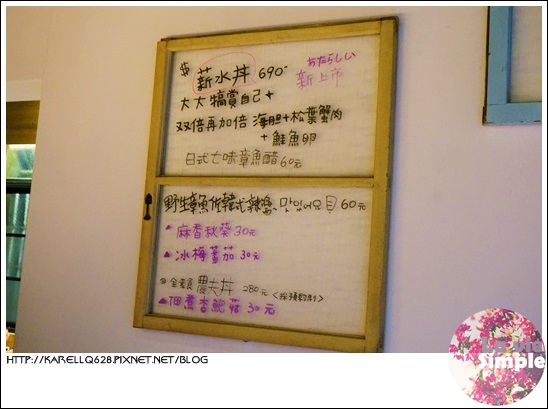 $ 薪水丼 690-
あたらしい
新上市
大大犒賞自己+
双倍再加倍 海胆+松葉蟹肉
+鮭魚卵
日式七味章魚醋 60元
野生章魚佐韓式辣醬、맛있어요 60元
▲麻香秋葵30元
▲冰梅蕃茄 30元
全素食 農夫丼 280元<採預約制>
▲佃煮杏鮑菇 30元
HTTP://KARELLQ628.PIXNET.NET/BLOG
Simple
Simple